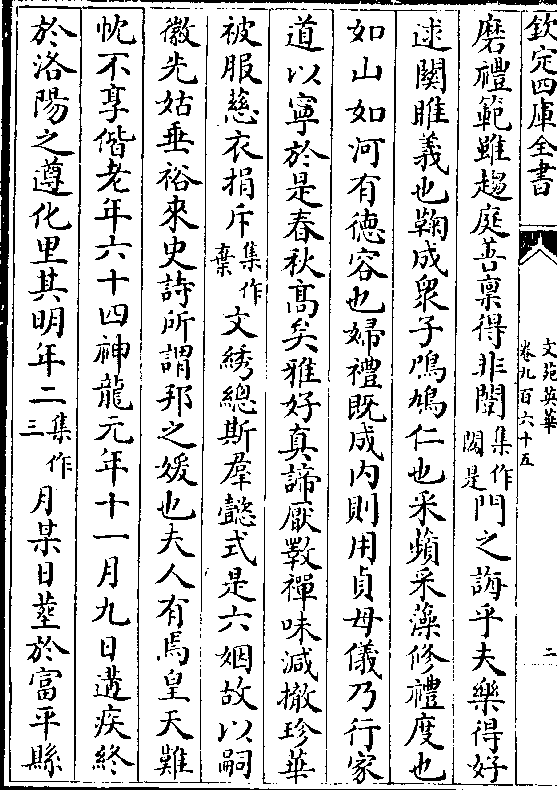 欽定四庫全書
文苑英華
卷九百六十五
二
磨禮範雖趨庭善禀得非閨集作閫是門之誨乎夫樂得好
逑關雎義也鞠成衆子鳲鳩仁也采蘋采藻修禮度也
如山如河有德容也婦禮既成内則用貞母儀乃行家
道以寧於是春秋髙矣雅好真諦厭斁禪味減撤珍華
被服慈衣捐斥集作棄文綉總斯羣懿式是六姻故以嗣
徽先姑垂裕來史詩所謂邦之媛也夫人有焉皇天難
忱不享偕老年六十四神龍元年十一月九日遘疾終
於洛陽之遵化里其明年二集作三月某日塟於富平縣